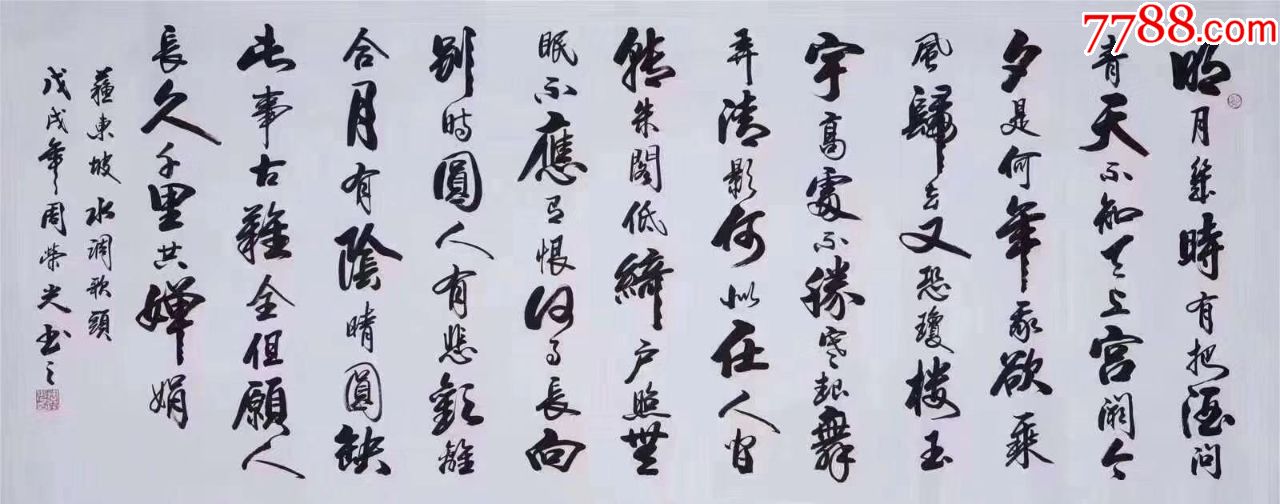 明月幾時有把酒問
青天不知天上宫闕今
夕是何年我欲乘
風歸去又恐瓊楼玉
宇高處不勝寒起舞
弄清影何似在人間
轉朱閣低綺户照無
眠不應有恨何事長向
别時圓人有悲歡離
合月有陰晴圓缺
此事古難全但願人
長久千里共嬋娟
蘇東坡水調歌頭
戊戌年周榮光书之
7788.com
中国收藏热线